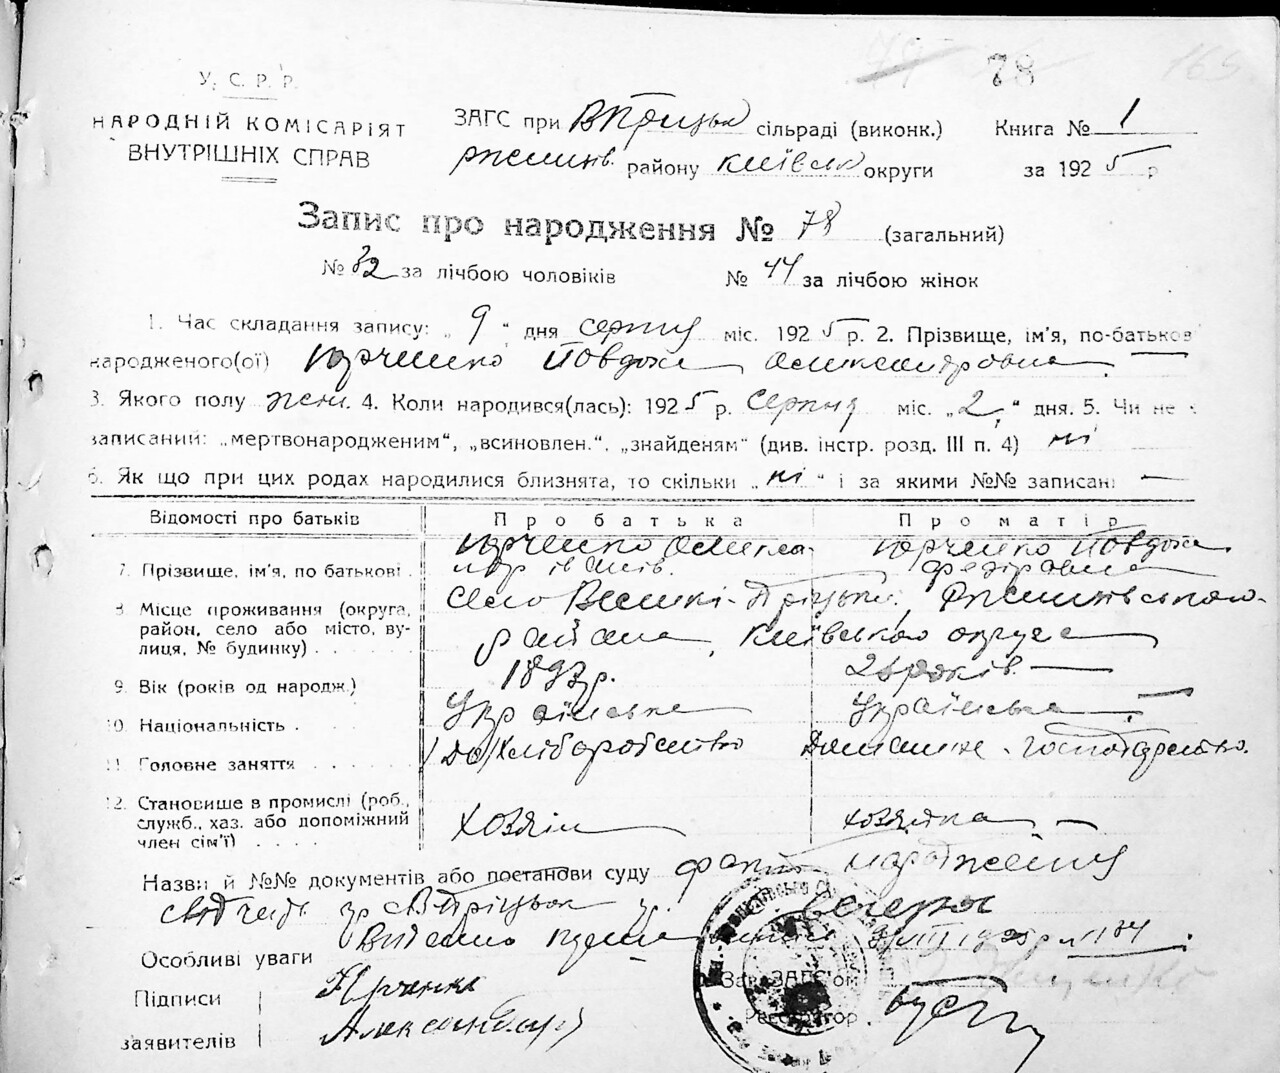 78
165
У. С. Р. Р.
НАРОДНІЙ КОМІСАРІЯТ
ВНУТРІШНІХ СПРАВ
ЗАГС при В Пріцьк сільраді (виконк.) Книга № 1
Ржищів. району Київськ округи за 1925 р
Запис про народження № 78 (загальний)
№ 32 за лічбою чоловіків № 44 за лічбою жінок
1. Час складання запису: „ 9 " дня серпня міс. 1925 р. 2. Прізвище, ім'я, по-батькові
народженого(ої) Юрченко Йовдоха Олександровна
3. Якого полу жен. 4. Коли народився(лась): 1925 р. Серпня міс. „ 2 " дня. 5. Чи не
записаний: „мертвонародженим", „всиновлен.", „знайденям" (див. інстр. розд. III п. 4) ні
6. Як що при цих родах народилися близнята, то скільки „ ні " і за якими №№ записані —
Відомості про батьків Про батька Про матір
7. Прізвище, ім'я, по батькові . Юрченко Олександр Іванів. Юрченко Йовдоха Федоровна
8 Місце проживання (округа, Село Великі-Пріцьки, Ржищівського
район, село або місто, ву- района, Київського округа
лиця, № будинку) . . . . .
9. Вік (років од народж.) 1897р. 26 років.
10. Національність . Українська Українська
11. Головне заняття . . . . . . Хліборобство Домашне - господарство.
12. Становище в промислі (роб.,
служб., хаз. або допоміжний Хозяін хозяйка
член сім'ї) . . . .
Назви й №№ документів або постанови суду факт народження
Видано
Особливі уваги
Зав. ЗАГС'ом
Підписи Юрченко
Реєстратор
заявителів Александр